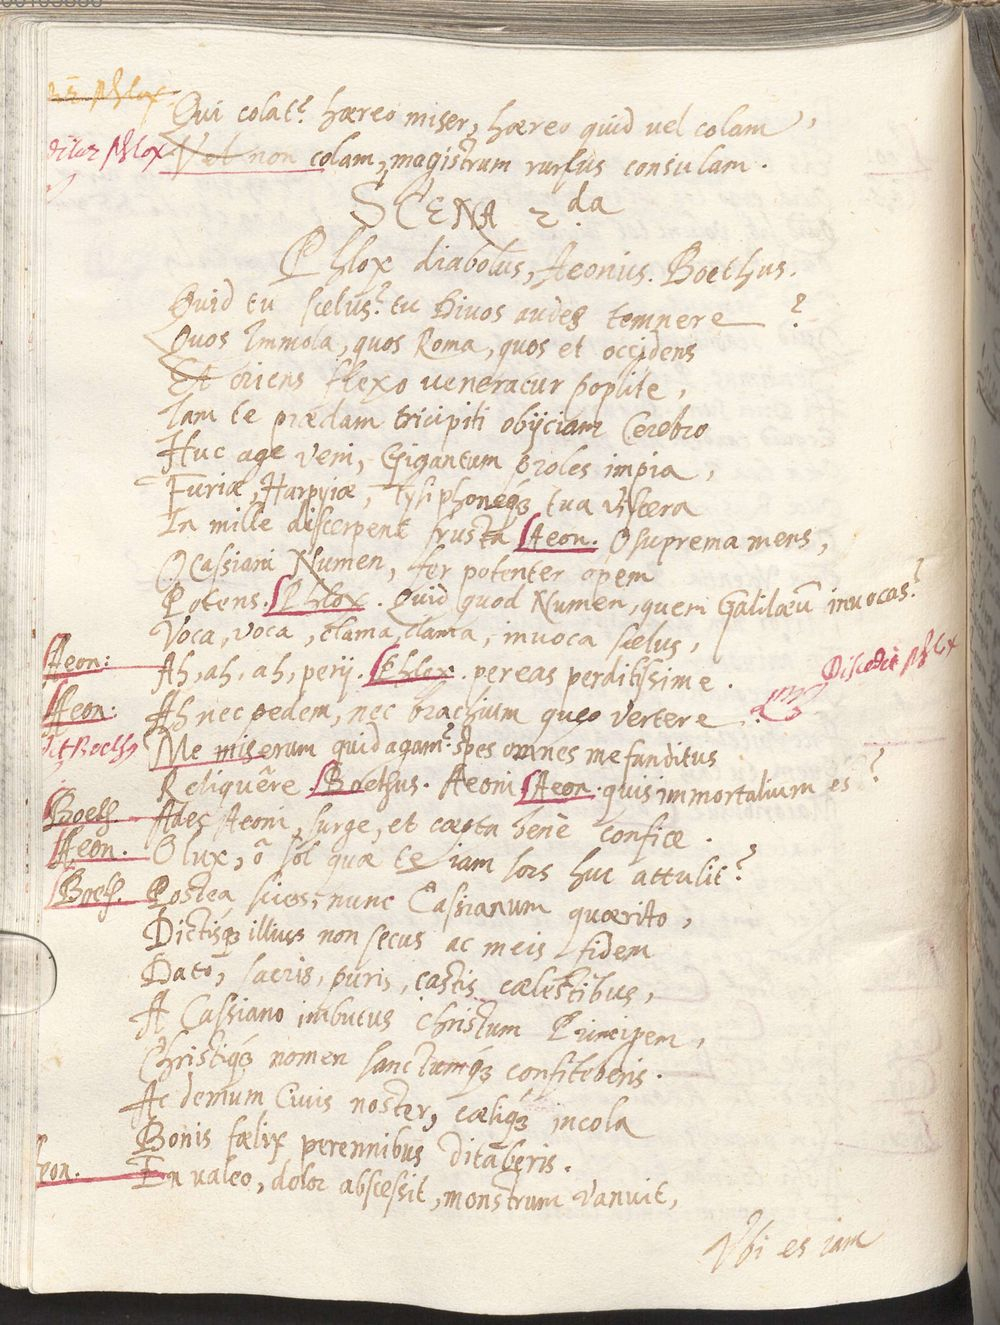 Phlox
Qui colat? haereo miser, haereo quid vel colam,
Phlox Vel non colam, magistrum rursus consulam.
SCENA 2.da
Phlox diabolus, Aeonius. Boethus.
Quid tu scelus? tu Divos audes temnere?
Quos Immola, quos Roma, quos et occidens
Et oriens flexo veneratur poplite,
Iam te praedam tricipiti obijciam Cerebro
Huc age veni, Gigantum proles impia,
Furiae, Harpyiae, Tysiphoneq₃ tua viscera
In mille discerpent frusta Aeon. O suprema mens,
O Cassiani Numen, fer potenter opem
Potens. Phlox. Quid quod Numen, quem Galilaeū invocas?
Voca, voca, clama, clama, invoca scelus,
Aeon: Ah, ah, ah, perij. Phlox. pereas perditissime. Discedit Phlox
Aeon: Ah nec pedem, nec brachium queo vertere.
Me miserum quid agam? spes omnes me funditus
Reliquēre. Boethus. Aeoni Aeon. quis immortalium es?
Boeth. Ades Aeoni, surge, et caepta benè confice.
Aeon. O lux, ô sol quae te iam sors huc attulit?
Boeth. Postea scies; nunc Cassianum quaerito,
Dictisq₃ illius non secus ac meis fidem
Dato, sacris, puris, castis caelestibus,
A Cassiano imbutus Christum Principem,
Christiq₃ nomen sanctumq₃ confiteberis.
Ac demum Civis noster, caeliq₃ incola
Bonis faelix perennibus ditaberis.
eon. En valeo, dolor abscessit, monstrum vanuit,
Vbi es iam